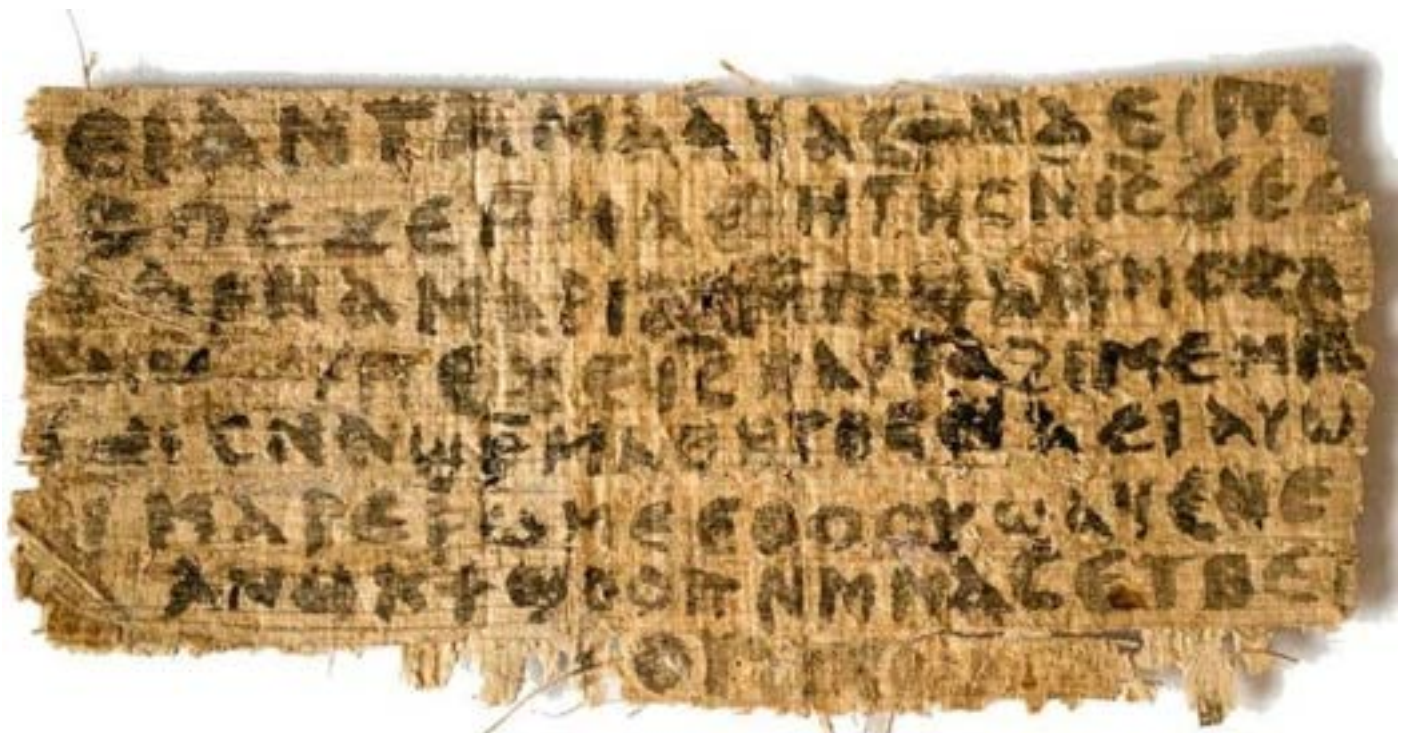 ⲉⲓ ⲁⲛ ⲧⲁⲙⲁⲁⲩ ⲁⲥϯ ⲛⲁⲉⲓ ⲡ
ⲡⲉϫⲉ ⲙⲙⲁⲑⲏⲧⲏⲥ ⲛ̄ⲓ̅ⲥ̅ ϫⲉ ⲥ
ⲁⲣⲛⲁ ⲙⲁⲣⲓⲁⲙ ⲙⲡϣⲁ ⲙⲙⲟⲥ ⲁ
ⲡⲉϫⲉ ⲓ̅ⲥ̅ ⲛⲁⲩ ⲧⲁϩⲓⲙⲉ ⲙⲛ
ⲥⲛⲁϣⲣ̄ⲙⲁⲑⲏⲧⲏⲥ ⲛⲁⲉⲓ ⲁⲩⲱ
ⲓ ⲙⲁⲣⲉⲣⲱⲙⲉ ⲉⲑⲟⲟⲩ ϣⲁϥⲉ ⲛⲉ
ⲁⲛⲟⲕ ϯϣⲟⲟⲡ ⲛⲙⲙⲁⲥ ⲉⲧⲃⲉ